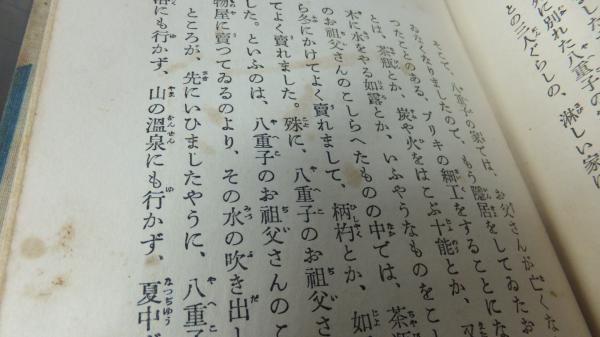 に別れた八重子の
との三人ぐらしの、淋しい家に
そこで、八重子の家では、お父さんが亡くな
ゐなくなりましたので、もう隱居をしてゐたお
つたことのある、ブリキの細工をすることにな
とは、茶瓶とか、炭や火をはこぶ十能とか、
木に水をやる如露とか、いふやうなものをこし
のお祖父さんのこしらへたものの中では、茶瓶
ら冬にかけてよく賣れまして、柄杓とか、如
てよく賣れました。殊に、八重子のお祖父さ
した。といふのは、八重子のお祖父さんのこ
物屋に賣つてゐるのより、その水の吹き出し
ところが、先にいひましたやうに、八重子
にも行かず、山の溫泉にも行かず、夏中